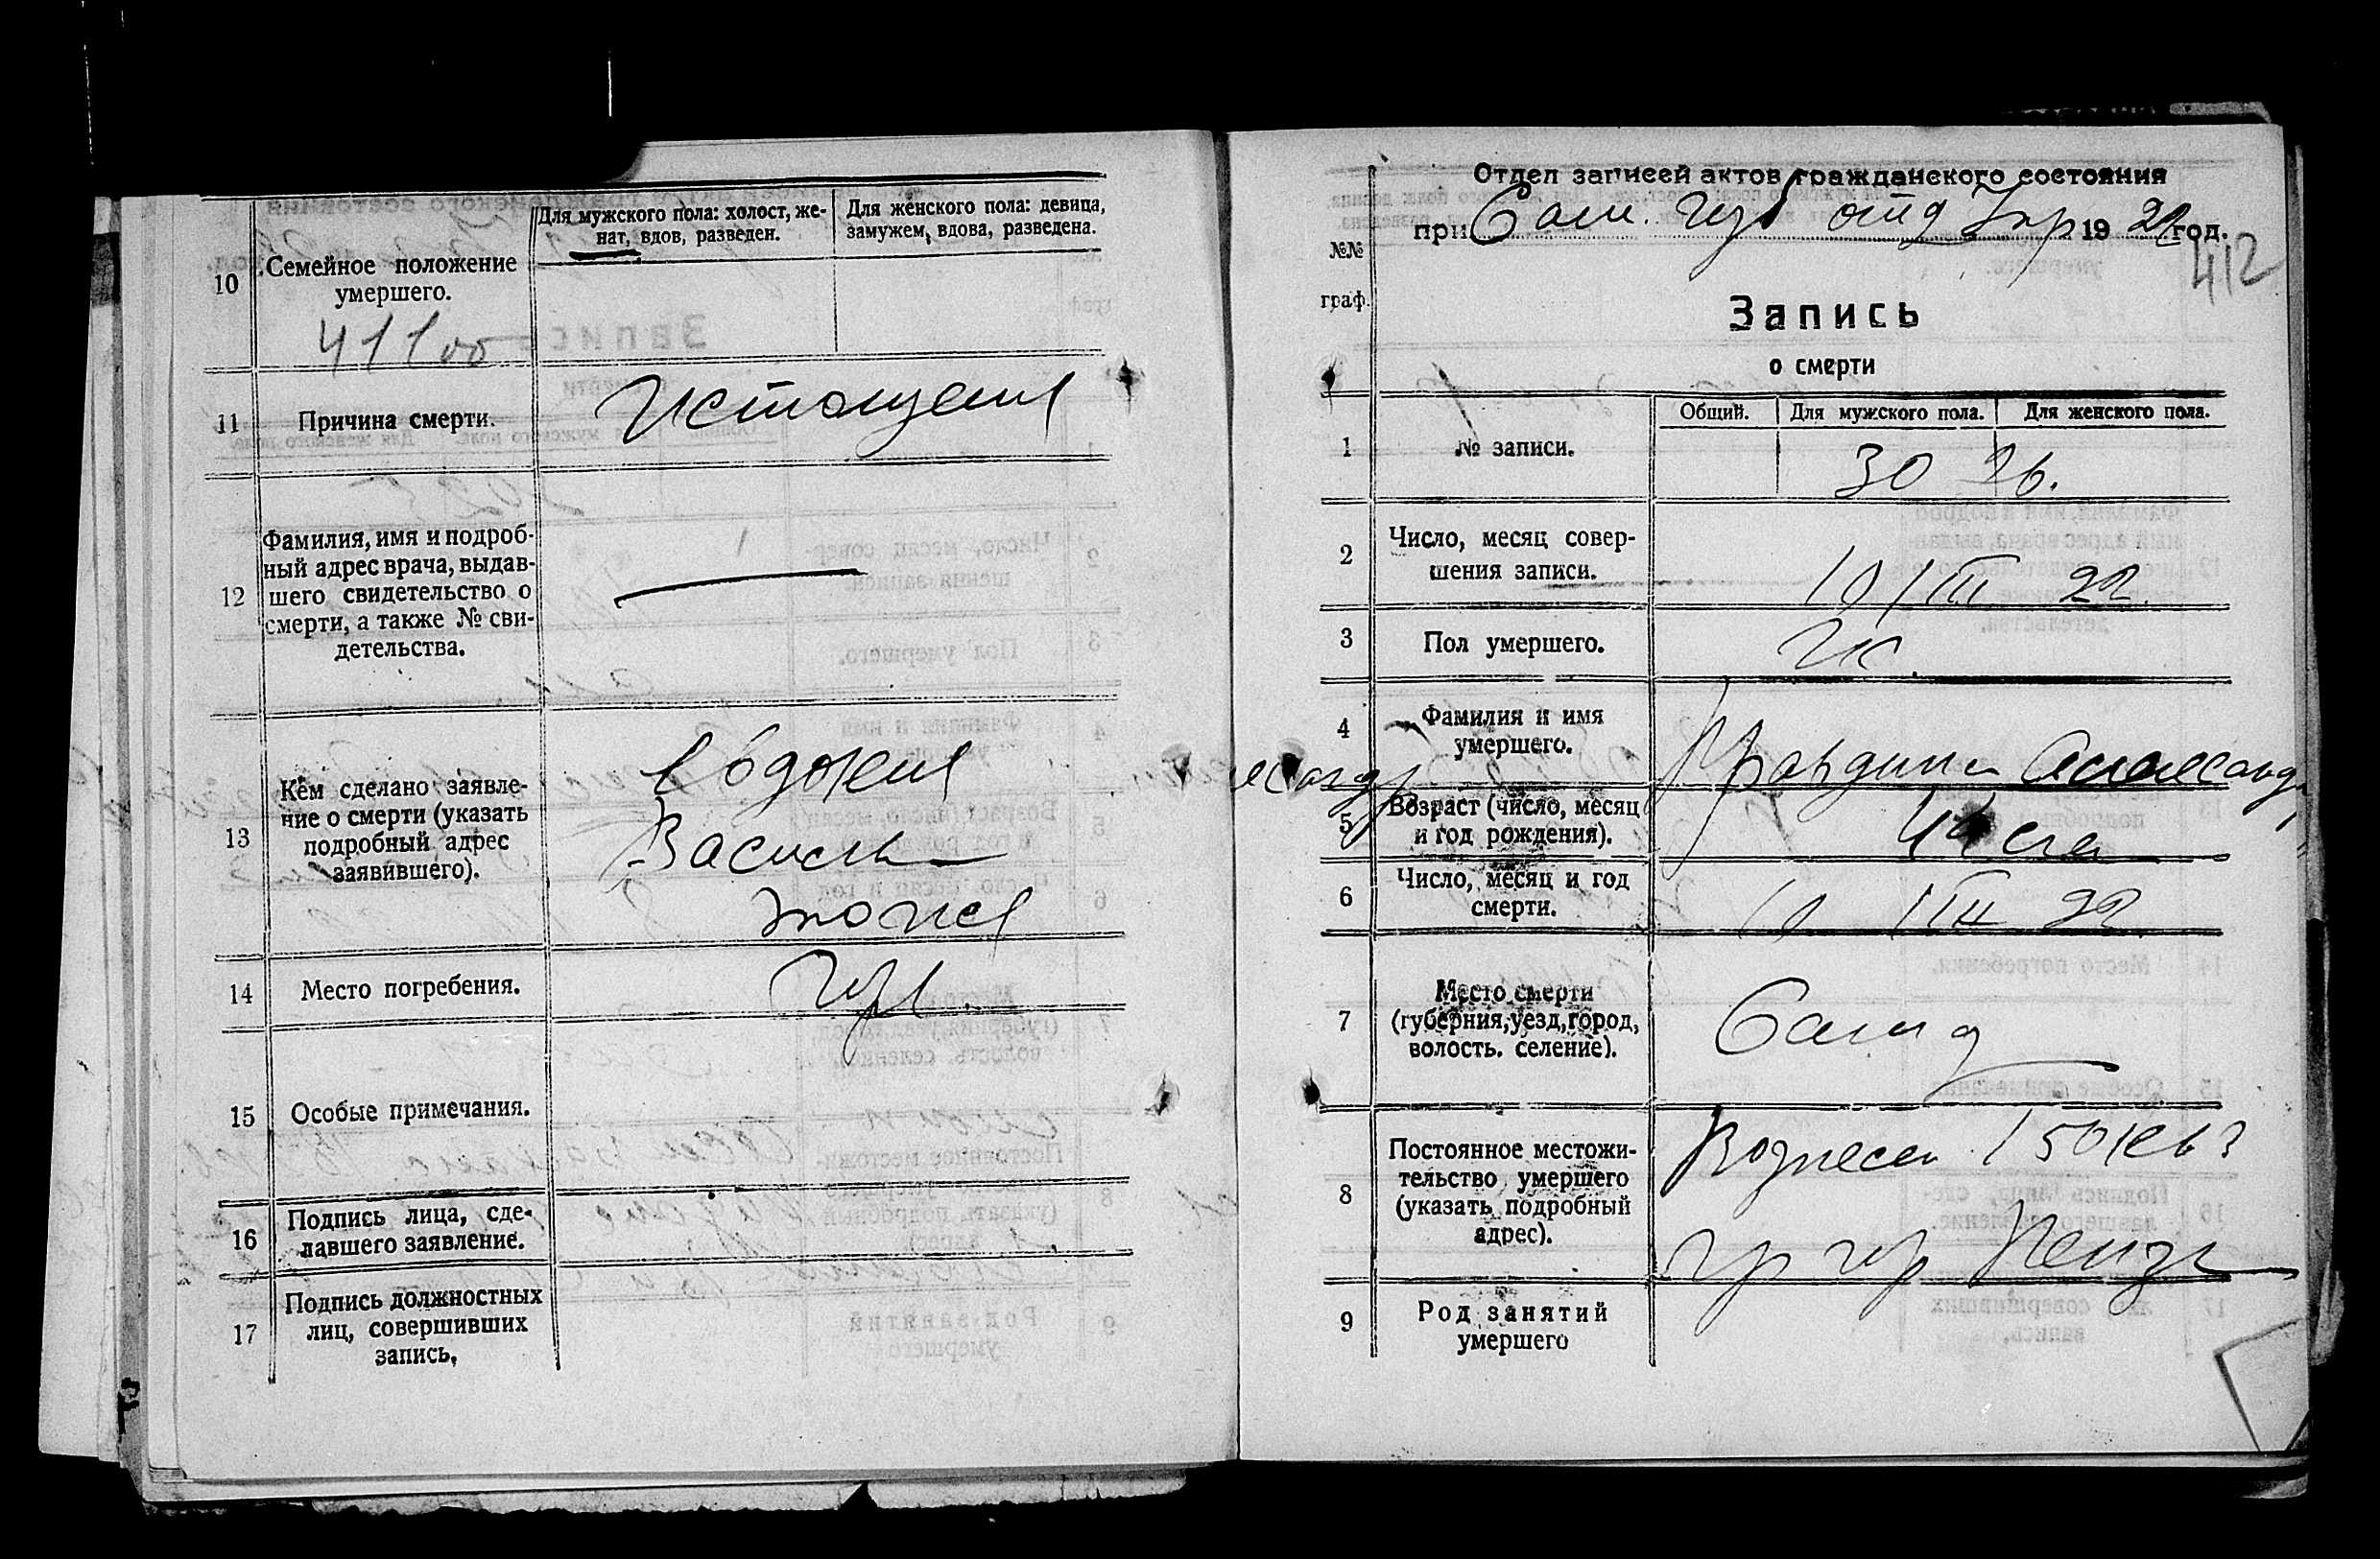 10
Семейное положение
умершего.
Для мужского пола: холост, же-
нат, вдов, разведен.
Для женского пола: девица,
замужем, вдова, разведена.
411 об
11
Причина смерти.
Истощения
12
Фамилия, имя и подроб-
ный адрес врача, выдав-
шего свидетельство о
смерти, а также № сви-
детельства.
13
Кем сделано заявле-
ние о смерти (указать
подробный адрес
заявившего).
Евдокия
Василь
14
Место погребения.
15
Особые примечания.
16
Подпись лица, сде-
лавшего заявление.
17
Подпись должностных
лиц, совершивших
запись.
Отдел записей актов гражданского состояния
при Сам. губ отд Упр 1922 год.
412
№№
граф.
Запись
о смерти
Общий.
Для мужского пола.
Для женского пола.
1
№ записи.
30 26.
2
Число, месяц совер-
шения записи.
10/III 22.
3
Пол умершего.
4
Фамилия и имя
умершего.
Александр
5
Возраст (число, месяц
и год рождения).
6
Число, месяц и год
смерти.
10 III 22.
7
Место смерти
(губерния, уезд, город,
волость. селение).
Самд
8
Постоянное местожи-
тельство умершего
(указать подробный
адрес).
Вознесен 150 кв 3
гр гор Пенз
9
Род занятий
умершего